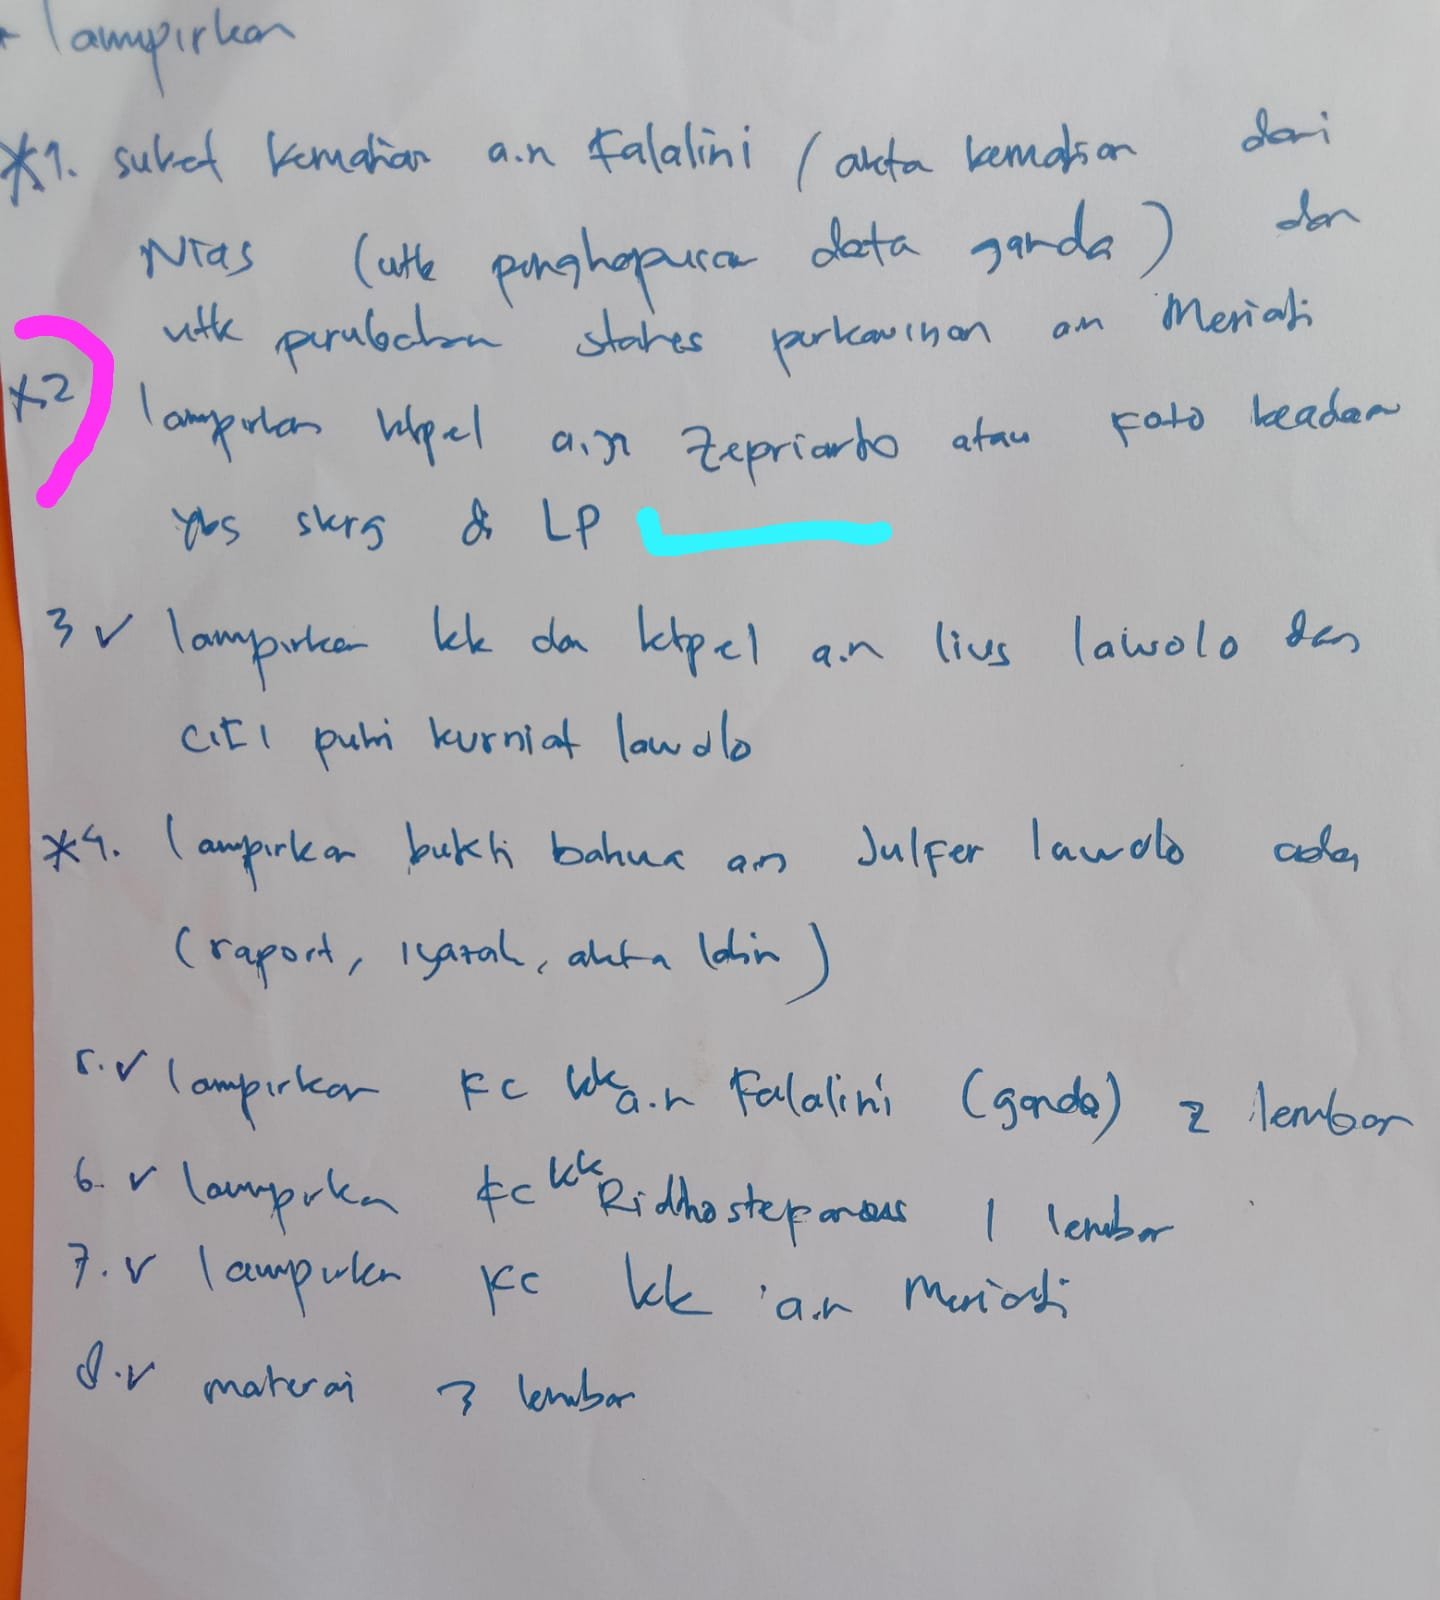 - lampirkan
*1. suket kematian a.n Falalini / akta kematian dari
Nias (utk penghapusan data ganda) dan
utk perubahan status perkawinan an Meriati
*2 lampirkan ktpel a.n Zeprianto atau Foto keadaan
ybs skrg di LP
3 ✓ lampirkan kk dan ktpel a.n lius lawolo dan
citi putri kurniat lawolo
*4. lampirkan bukti bahwa an Julfer lawolo ada
(raport, ijazah, akta lahir)
5. ✓ lampirkan Fc kk a.n Falalini (ganda) 2 lembar
6. ✓ lampirkan Fc kk Ridho stepanus 1 lembar
7. ✓ lampirkan Fc kk a.n Meriati
8. ✓ materai 3 lembar